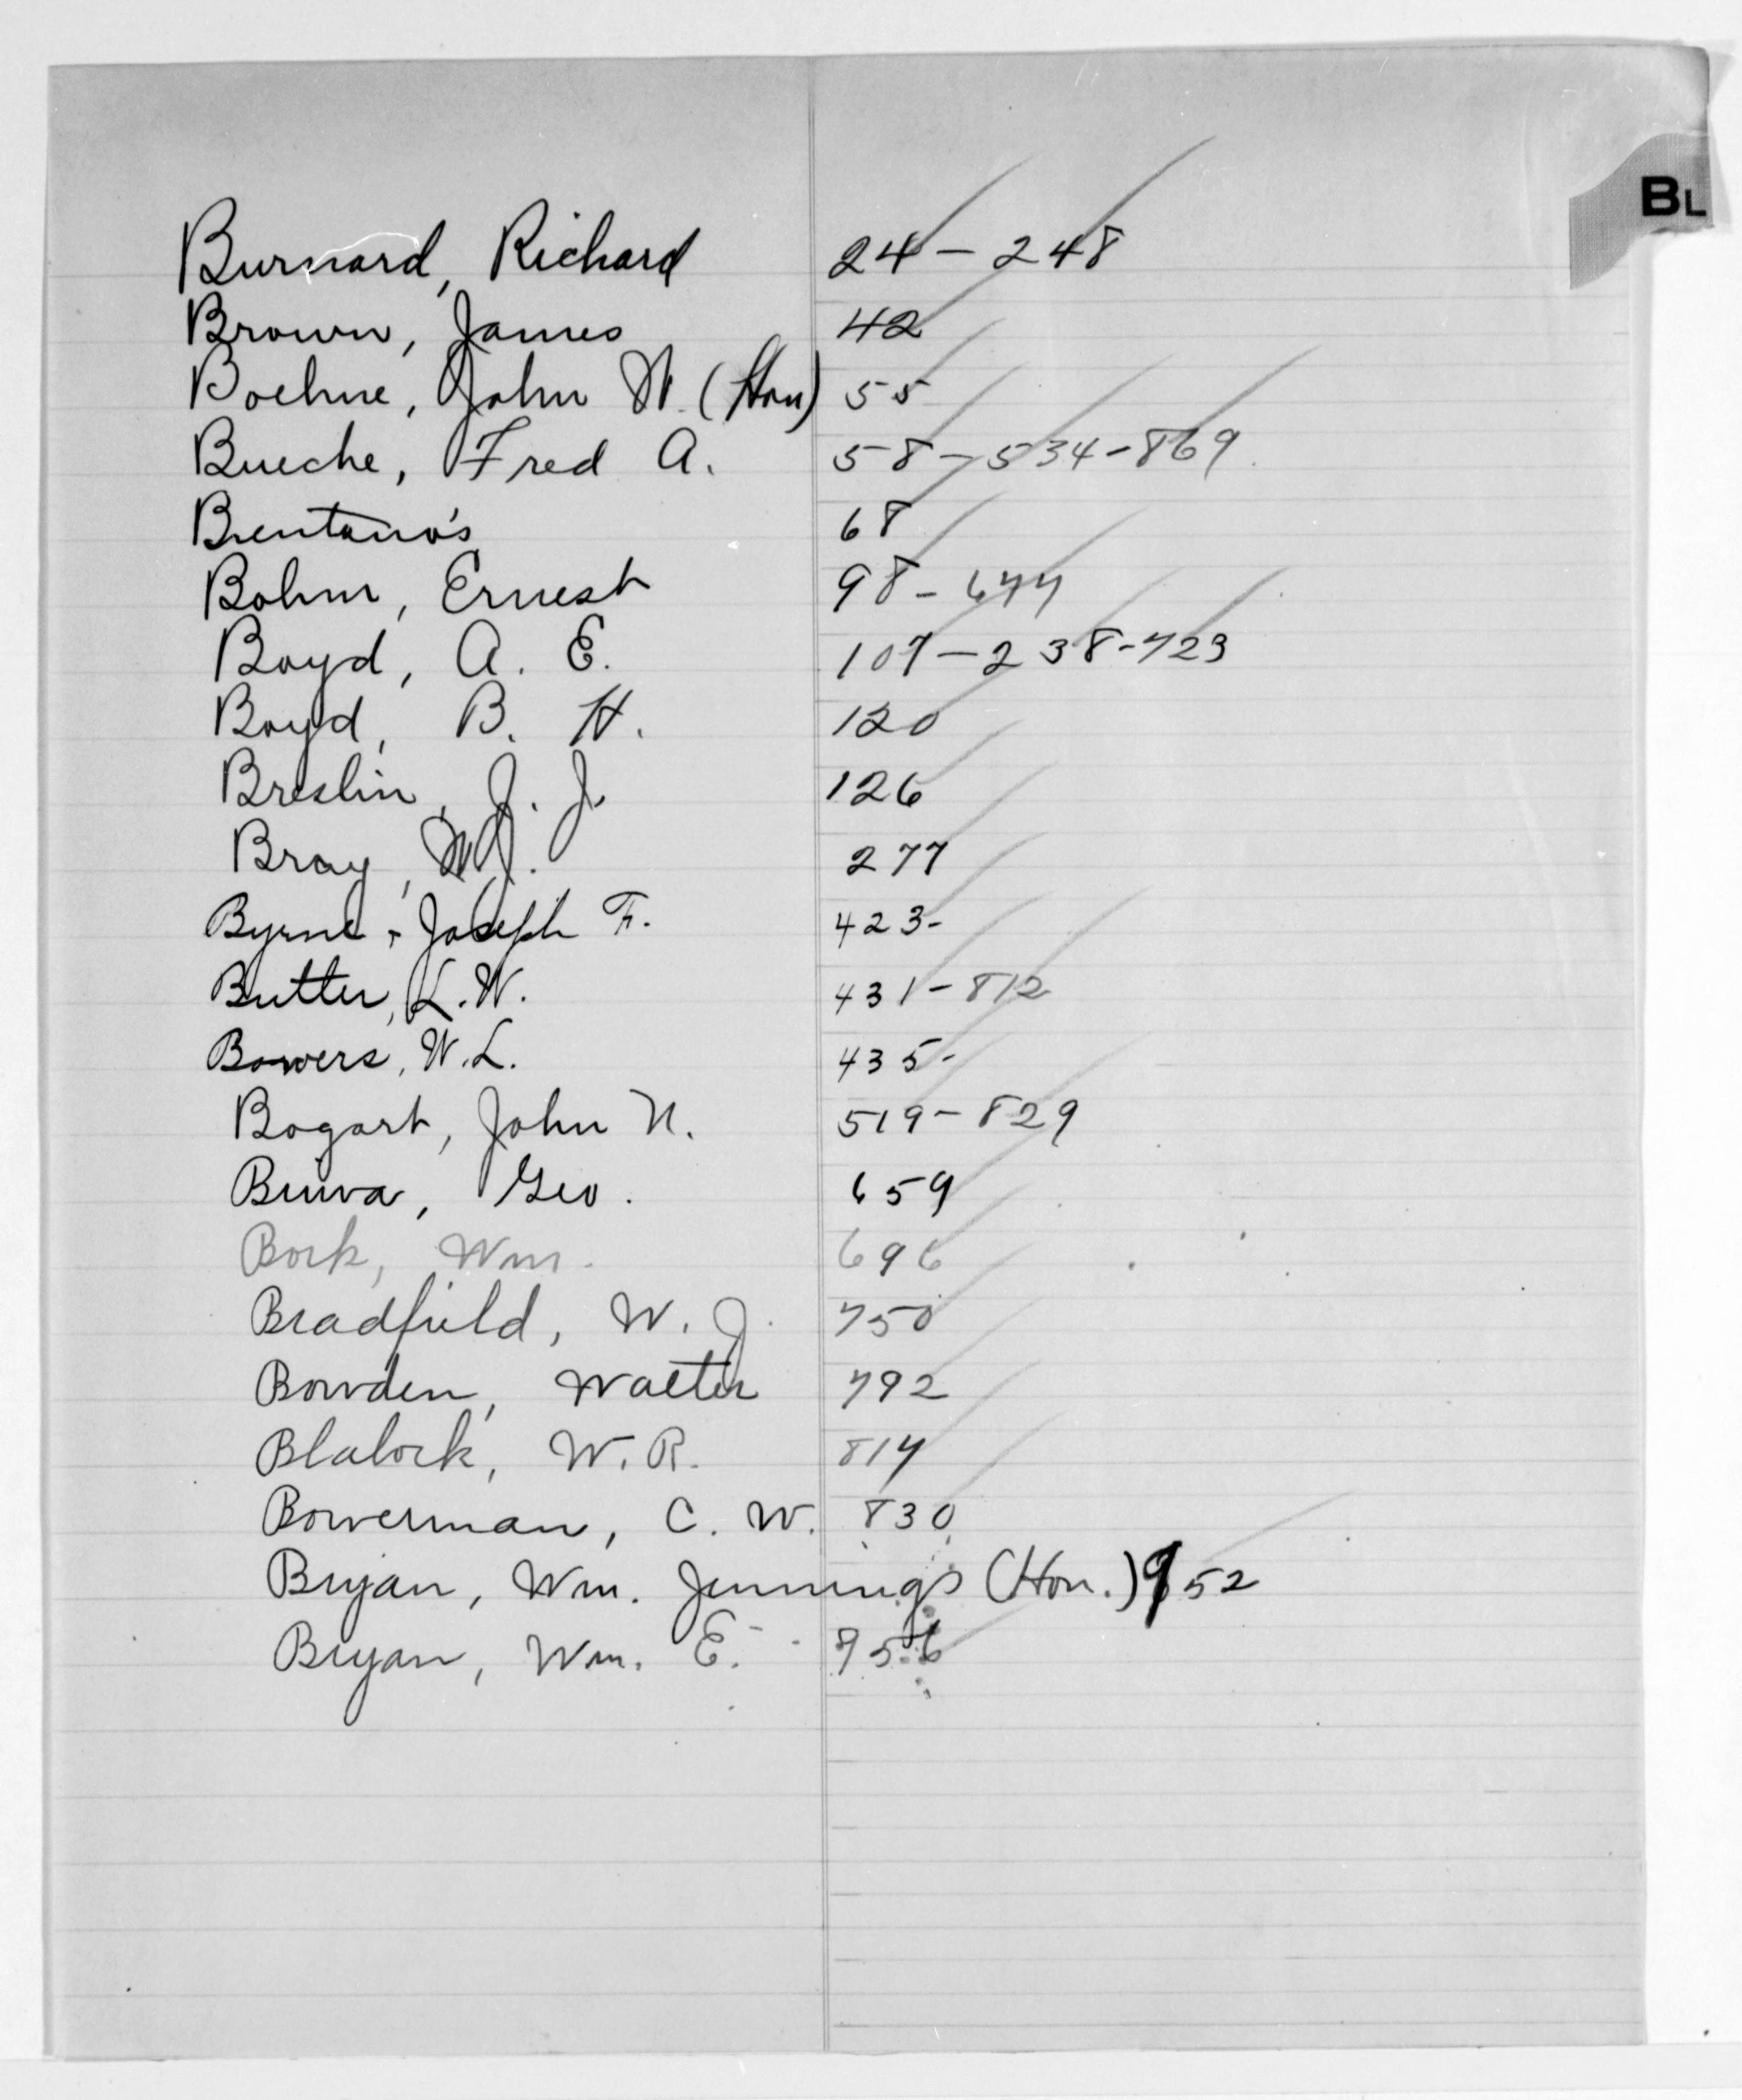 BL
Burnard, Richard 24 - 248
Brown, James 42
Boehne, John W. (Hon) 55
Bueche, Fred A. 58 - 534 - 869
Brentano's 68
Bohm, Ernest 98 - 677
Boyd, A. E. 107 - 238 - 723
Boyd, B. H. 120
Breslin, J. J. 126
Bray, W J. 277
Byrne, Joseph F. 423 -
Butler, L. W. 431 - 812
Bowers, W. L. 435 -
Bogart, John N. 519 - 829
Geo. 659
Bork, Wm. 696
Bradfield, W. J. 750
Bowden, Walter 792
Blalock, W. R. 817
Bowerman, C. W. 830
Bryan, Wm. Jennings (Hon.) 952
Bryan, Wm. E. 956